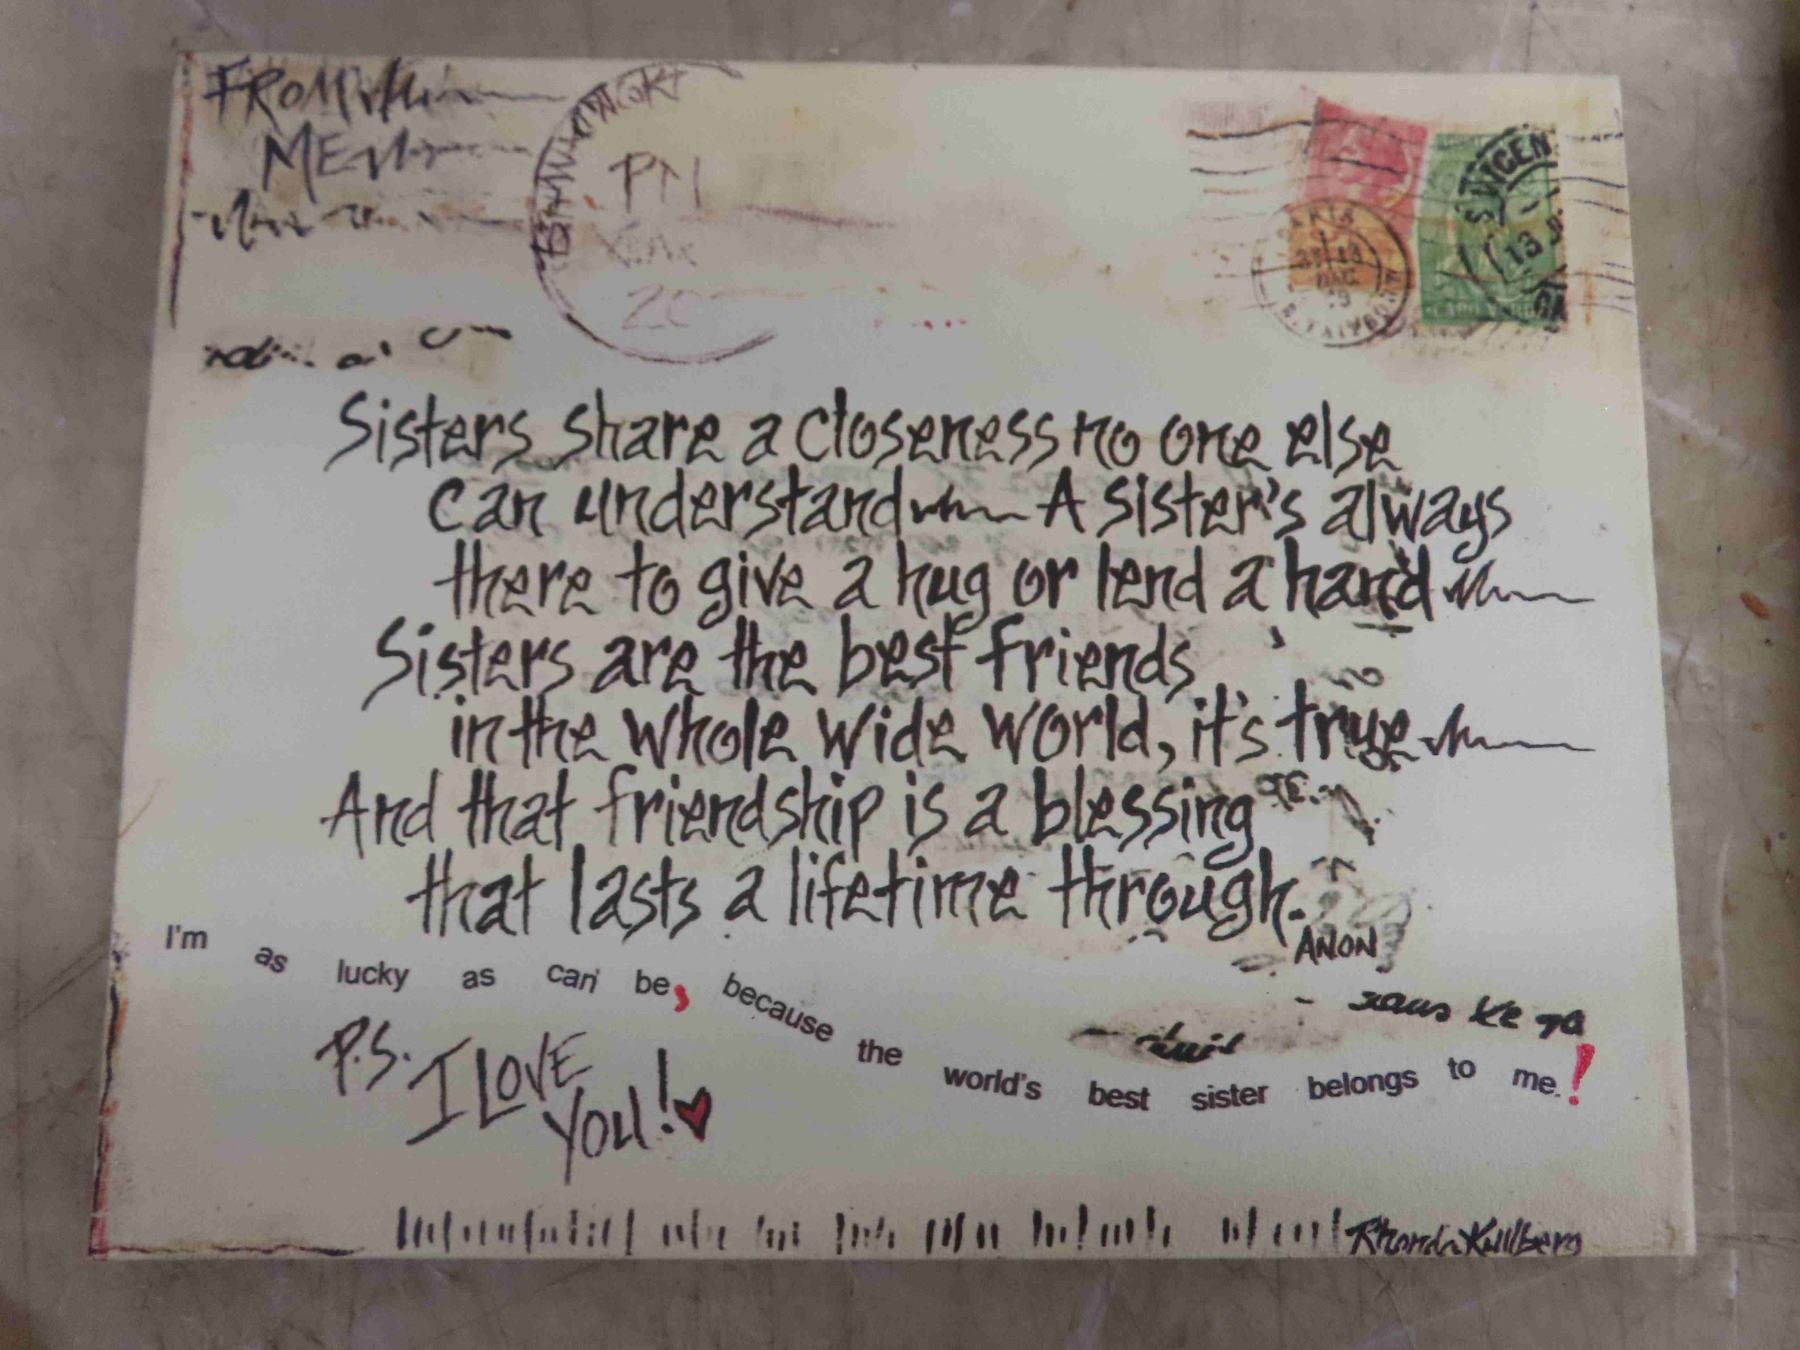 FROM
ME
PM
Sisters share a closeness no one else
can understand A sister's always
there to give a hug or lend a hand
Sisters are the best friends
in the whole wide world, it's true
And that friendship is a blessing
that lasts a lifetime through.
ANON
I'm as lucky as can be, because the world's best sister belongs to me.!
P.S. I LOVE
YOU!
Rhonda Kullberg